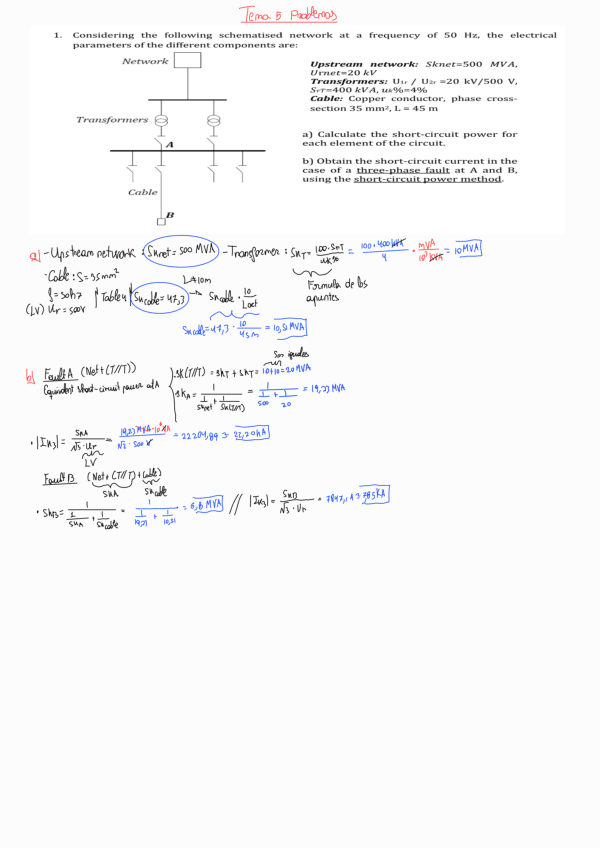 Tema 5 Problemas
1. Considering the following schematised network at a frequency of 50 Hz, the electrical
parameters of the different components are:
Network
Transformers
A
Cable
B
Upstream network: Sknet=500 MVA,
Urnet=20 kV
Transformers: U1r / U2r =20 kV/500 V,
SrT=400 kVA, uk%=4%
Cable: Copper conductor, phase cross-
section 35 mm², L = 45 m
a) Calculate the short-circuit power for
each element of the circuit.
b) Obtain the short-circuit current in the
case of a three-phase fault at A and B,
using the short-circuit power method.
a) - Upstream network: Sknet = 500 MVA - Transformer: SkT = 100·SnT / uk% = 100·400 kVA / 4 · MVA / 10³ kVA = 10 MVA
- Cable: S=35mm²
f=50Hz
(LV) Ur = 500V
Table 4
Skcable = 47,3
L≠10m
→ Skcable · 10 / Lact
Formula de los
apuntes
Skcable = 47,3 · 10 / 45m = 10,51 MVA
b) Fault A (Net + (T//T))
Equivalent short-circuit power at A
Son iguales
· Sk(T//T) = SkT + SkT = 10+10 = 20 MVA
· SkA = 1 / (1/Sknet + 1/Sk(T//T)) = 1 / (1/500 + 1/20) = 19,23 MVA
· |Ik3| = SkA / √3·Ur = 19,23 MVA·10⁶ VA / √3·500 V = 22204,89 ≈ 22,20 kA
LV
Fault B (Net + (T//T) + Cable)
SkA Skcable
· SkB = 1 / (1/SkA + 1/Skcable) = 1 / (1/19,23 + 1/10,51) = 6,8 MVA // |Ik3| = SkB / √3·Ur = 7847,1 A ≈ 7,85 kA